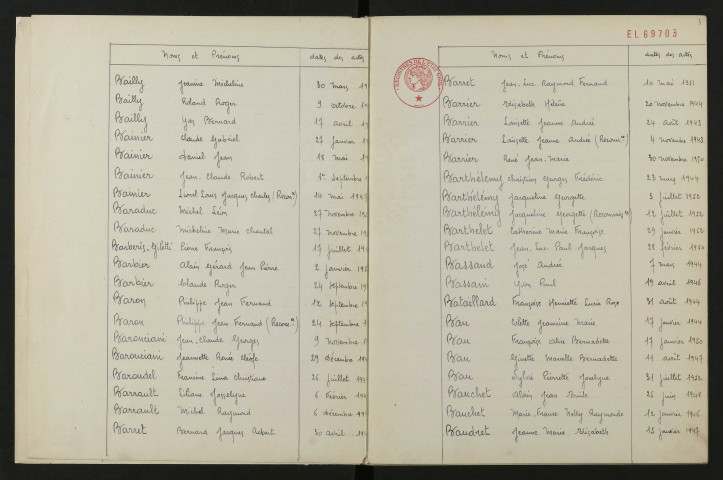 Noms et Prénoms dates des actes
Bailly Jeanine Micheline 30 mars 19
Bailly Roland Roger 9 octobre 1
Bailly Guy Bernard 17 avril
Bainier Claude Gabriel 27 janvier 1
Bainier Daniel Jean 18 mai 1
Bainier Jean-Claude Robert 1er septembre 1
Bainier Lionel Louis Jacques Charles (Reconn) 14 mai 1947
Baraduc Michel Léon 27 novembre 19
Baraduc Micheline Marie Chantal 27 novembre 19
Barberis, Giletti Pierre François 17 juillet 19
Barbier Alain Gérard Jean Pierre 2 janvier 19
Barbier Claude Roger 24 septembre 19
Baron Philippe Jean Fernand 12 septembre 19
Baron Philippe Jean Fernand (Reconn) 24 septembre 1
Baronciani Jean-Claude Georges 9 novembre 1
Baronciani Jeannette Renée 29 décembre 19
Baroudel Francine Christiane 26 juillet 19
Barrault Liliane Josselyne 6 février 194
Barrault Michel Raymond 6 décembre 19
Barret Bernard Jacques Robert 30 avril
EL69703
Noms et Prénoms dates des actes
Barret Jean-Luc Raymond Fernand 10 mai 1951
Barrier Elisabeth Hélène 20 novembre 1944
Barrier Lucette Jeanne André 24 août 1943
Barrier Lucette Jeanne André (Reconn) 4 novembre 1943
Barrier René Jean-Marie 30 novembre 1950
Barthélemy Christian Georges Frédéric 23 mars 1944
Barthélémy Jacqueline Georgette 3 juillet 1952
Barthélémy Jacqueline Georgette (Reconnaiss) 12 juillet 1952
Barthelet Catherine Marie Françoise 29 janvier 1952
Barthelet Jean-Luc Paul Jacques 28 février 1950
Bassand José Andrée 7 mars 1944
Bassani Yvon Paul 19 avril 1946
Bataillard Françoise Henriette Lucie Rose 31 août 1944
Bau Colette Jeannine Marie 17 janvier 1944
Bau Françoise Aline Bernadette 17 janvier 1950
Bau Ginette Marcelle Bernadette 11 août 1947
Bau Sylvie Pierrette Jocelyne 31 juillet 1952
Bauchet Alain Jean Emile 25 juin 1948
Bauchet Marie-France Nelly Raymonde 12 janvier 1946
Baudret Jeanne Marie Elisabeth 13 janvier 1947